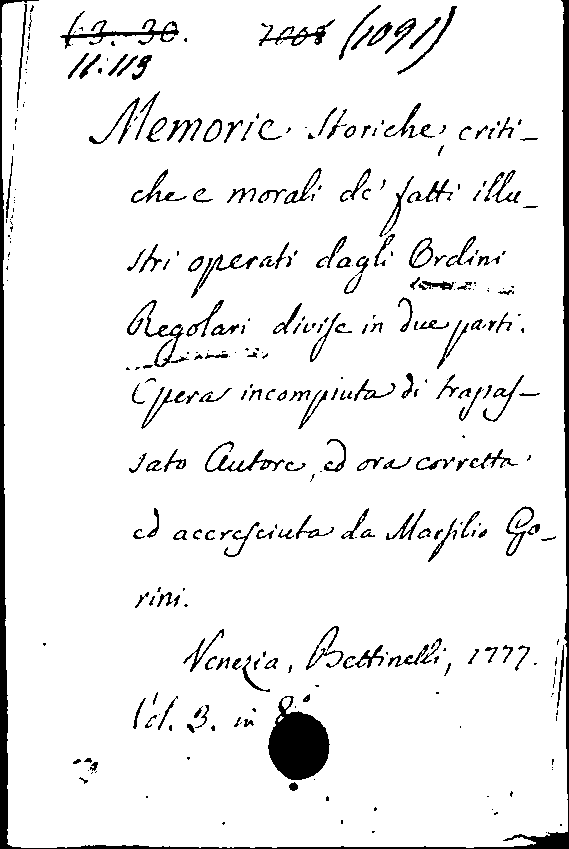 63. 30. 7008 (1091)
11.113
Memorie Storiche, criti-
che e morali de' fatti illu-
stri operati dagli Ordini
Regolari divise in due parti.
Opera incompiuta di trapas-
sato Autore, ed ora corretta
ed accresciuta da Marsilio Go-
rini.
Venezia, Bettinelli, 1777.
Vol. 3. in 8º